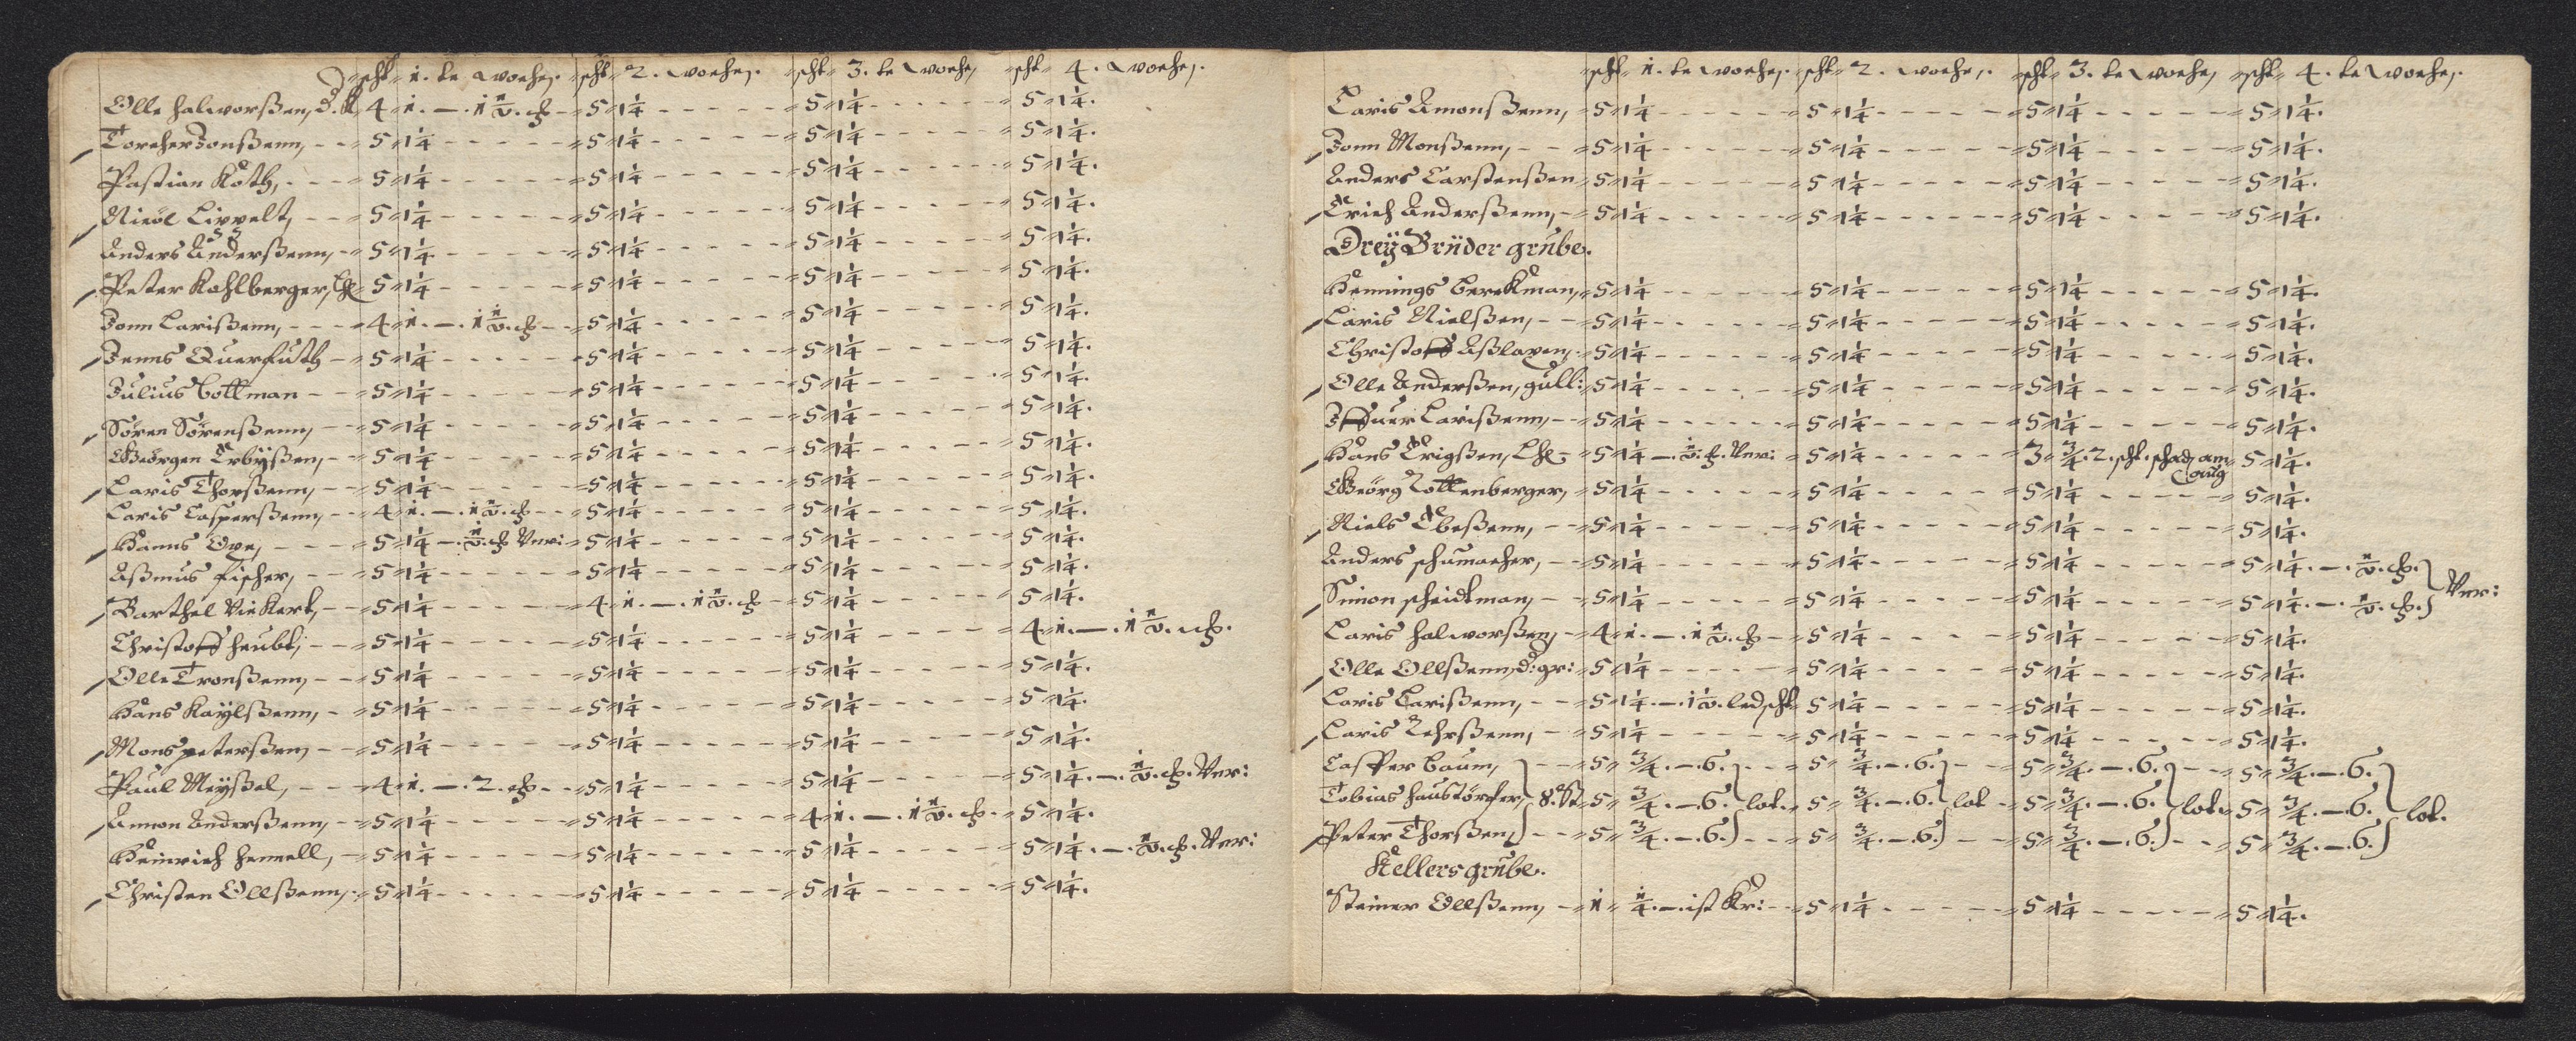 scht 1. te woche, scht 2. woche. scht 3. te woche, scht 4. woche.
Olle halworßen, d. K. 4 1. — . 1 1/2 . ch - 5 1 1/4 - - - 5 1 1/4 - - - 5 1 1/4.
Torcher Jonßenn, - 5 1 1/4 - - - 5 1 1/4 - - - 5 1 1/4 - - - 5 1 1/4.
Pastian Koth, - 5 1 1/4 - - - 5 1 1/4 - - - 5 1 1/4 - - - 5 1 1/4.
Nicol Lippelt, - 5 1 1/4 - - - 5 1 1/4 - - - 5 1 1/4 - - - 5 1 1/4.
Anders Anderßenn, - 5 1 1/4 - - - 5 1 1/4 - - - 5 1 1/4 - - - 5 1 1/4.
Peter Kohlberger, 5 1 1/4 - - - 5 1 1/4 - - - 5 1 1/4 - - - 5 1 1/4.
Jonn Larißenn, - 4 1. — . 1 1/2 . ch - 5 1 1/4 - - - 5 1 1/4 - - - 5 1 1/4.
Jenns Querfuth - 5 1 1/4 - - - 5 1 1/4 - - - 5 1 1/4 - - - 5 1 1/4.
Julius bottman - 5 1 1/4 - - - 5 1 1/4 - - - 5 1 1/4 - - - 5 1 1/4.
Sören Sörenßenn, - 5 1 1/4 - - - 5 1 1/4 - - - 5 1 1/4 - - - 5 1 1/4.
Geörgen Erbyßen, - 5 1 1/4 - - - 5 1 1/4 - - - 5 1 1/4 - - - 5 1 1/4.
Laris Thorßenn, - 5 1 1/4 - - - 5 1 1/4 - - - 5 1 1/4 - - - 5 1 1/4.
Laris Casperßenn, - 4 1. — . 1 1/2 . ch - 5 1 1/4 - - - 5 1 1/4 - - - 5 1 1/4.
Hanns Oxe, - 5 1 1/4 — . 1/2 . ch Ver: 5 1 1/4 - - - 5 1 1/4 - - - 5 1 1/4.
Aßmus fischer, - 5 1 1/4 - - - 5 1 1/4 - - - 5 1 1/4 - - - 5 1 1/4.
Barthel Viekert, - 5 1 1/4 - - - 4 1. — . 1 1/2 . ch - 5 1 1/4 - - - 5 1 1/4.
Christoff heubt, - 5 1 1/4 - - - 5 1 1/4 - - - 5 1 1/4 - - - 4 1. — . 1 1/2 . ch.
Olle Tronßenn, - 5 1 1/4 - - - 5 1 1/4 - - - 5 1 1/4 - - - 5 1 1/4.
Hans Kaylßenn, - 5 1 1/4 - - - 5 1 1/4 - - - 5 1 1/4 - - - 5 1 1/4.
Mons peterßen, - 5 1 1/4 - - - 5 1 1/4 - - - 5 1 1/4 - - - 5 1 1/4.
Paul Meyßel, - 4 1. — . 2. ch - 5 1 1/4 - - - 5 1 1/4 - - - 5 1 1/4. — . 1/2 . ch. Ver:
Amon Anderßenn, - 5 1 1/4 - - - 5 1 1/4 - - - 4 1. — . 1 1/2 . ch. 5 1 1/4.
Heinrich hennell, - 5 1 1/4 - - - 5 1 1/4 - - - 5 1 1/4 - - - 5 1 1/4. — . 1/2 . ch. Ver:
Christen Ollßenn, 5 1 1/4 - - - 5 1 1/4 - - - 5 1 1/4 - - - 5 1 1/4.
scht 1. te woche, scht 2. woche. scht 3. te woche, scht 4. te woche.
Laris Amonßenn, 5 1 1/4 - - - 5 1 1/4 - - - 5 1 1/4 - - - 5 1 1/4.
Jonn Monßenn, - 5 1 1/4 - - - 5 1 1/4 - - - 5 1 1/4 - - - 5 1 1/4.
Anders Carstenßen 5 1 1/4 - - - 5 1 1/4 - - - 5 1 1/4 - - - 5 1 1/4.
Erich Anderßenn, - 5 1 1/4 - - - 5 1 1/4 - - - 5 1 1/4 - - - 5 1 1/4.
Dreÿ Brüder grube.
Hennings berckman, 5 1 1/4 - - - 5 1 1/4 - - - 5 1 1/4 - - - 5 1 1/4.
Laris Nielßen, - 5 1 1/4 - - - 5 1 1/4 - - - 5 1 1/4 - - - 5 1 1/4.
Christoff Aßlaxen, 5 1 1/4 - - - 5 1 1/4 - - - 5 1 1/4 - - - 5 1 1/4.
Olle Anderßen, gull: 5 1 1/4 - - - 5 1 1/4 - - - 5 1 1/4 - - - 5 1 1/4.
Iffuer Larißenn, - 5 1 1/4 - - - 5 1 1/4 - - - 5 1 1/4 - - - 5 1 1/4.
Hans Erigßen, 5 1 1/4 — . 1/2 . ch. Ver: 5 1 1/4 - - - 3 3/4. 2. scht. schad am aug 5 1 1/4.
Geörg Rottenberger, 5 1 1/4 - - - 5 1 1/4 - - - 5 1 1/4 - - - 5 1 1/4.
Niels Ebeßenn, - 5 1 1/4 - - - 5 1 1/4 - - - 5 1 1/4 - - - 5 1 1/4.
Anders schumacher, - 5 1 1/4 - - - 5 1 1/4 - - - 5 1 1/4 - - - 5 1 1/4. — . 1/2 . ch. } Ver:
Simon scheidtman, - 5 1 1/4 - - - 5 1 1/4 - - - 5 1 1/4 - - - 5 1 1/4. — . 1/2 . ch. }
Laris halworßen, - 4 1. — . 1 1/2 . ch - 5 1 1/4 - - - 5 1 1/4 - - - 5 1 1/4.
Olle Ollßenn, d: gr: 5 1 1/4 - - - 5 1 1/4 - - - 5 1 1/4 - - - 5 1 1/4.
Laris Larißenn, - 5 1 1/4. — . 1 1/2 . led scht 5 1 1/4 - - - 5 1 1/4 - - - 5 1 1/4.
Laris Lehrßenn, - 5 1 1/4 - - - 5 1 1/4 - - - 5 1 1/4 - - - 5 1 1/4.
Casper baum, } - 5 3/4. — . 6. } - 5 3/4. — . 6. } - 5 3/4. — . 6. } - 5 3/4. — . 6. }
Tobias haustörfer } 8. St 5 3/4. — . 6. } lot. 5 3/4. — . 6. } lot 5 3/4. — . 6. } lot. 5 3/4. — . 6. } lot.
Peter Thorßen, } - 5 3/4. — . 6. } - 5 3/4. — . 6. } - 5 3/4. — . 6. } - 5 3/4. — . 6. }
Kellers grube.
Steiner Ollßenn, - 1 1/4. — . ist Kr: 5 1 1/4 - - - 5 1 1/4 - - - 5 1 1/4.